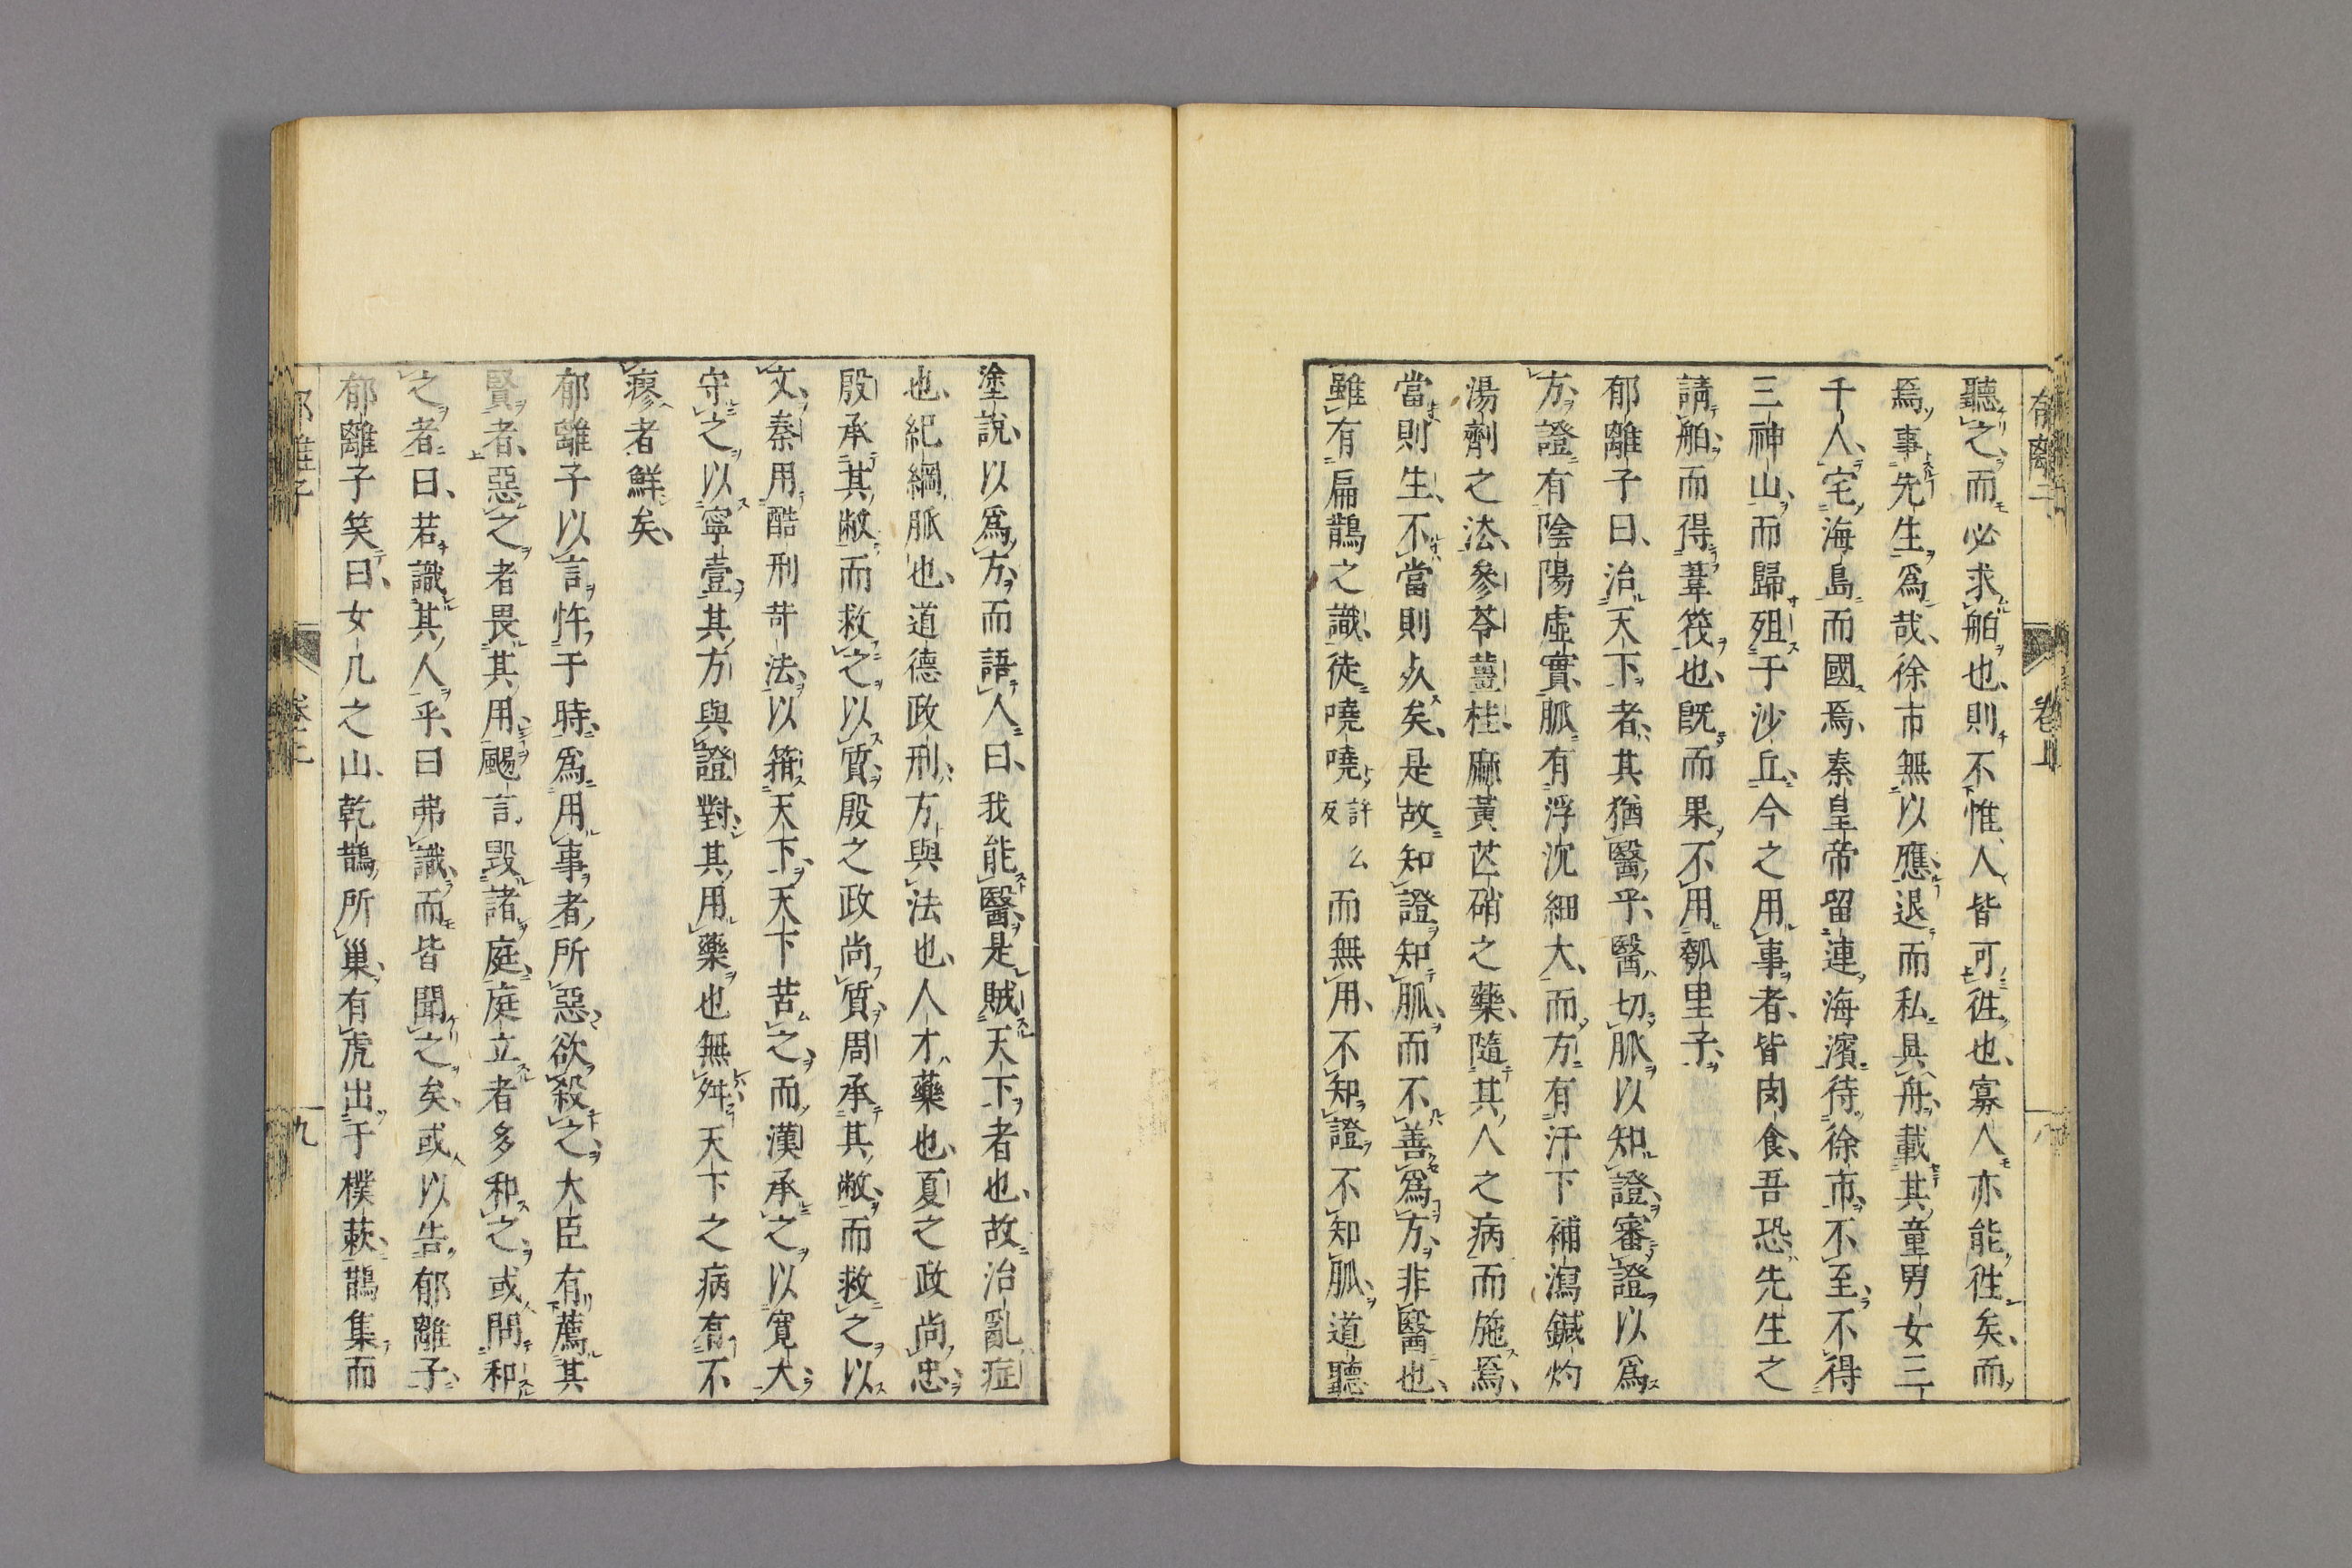 聽之而必求舶也則不惟人皆可徃也寡人亦能徃矣而
焉事先生爲哉徐市無以應退而私具舟載其童男女三
千人宅海島而國焉秦皇帝留連海濱待徐市不至不得
三神山而歸殂于沙丘今之用事者皆肉食吾恐先生之
請舶而得葦筏也既而果不用瓠里子
郁離子曰治天下者其猶醫乎醫切脈以知證審證以爲
方證有陰陽虛實脈有浮沈細大而方有汗下補瀉鍼灼
湯劑之法參苓薑桂麻黃芒硝之藥隨其人之病而施焉
當則生不當則死矣是故知證知脈而不善爲方非醫也
雖有扁鵲之識徒嘵嘵許么反而無用不知證不知脈道聽
郁離子
卷上
八
塗說以爲方而語人曰我能醫是賊天下者也故治亂症
也紀綱脈也道德政刑方與法也人才藥也夏之政尚忠
殷承其敝而救之以質殷之政尚質周承其敝而救之以
文秦用酷刑苛法以箝天下天下苦之而漢承之以寬大
守之以寧壹其方與證對其用藥也無舛天下之病有不
瘳者鮮矣
郁離子以言忤于時爲用事者所惡欲殺之大臣有薦其
賢者惡之者畏其用颺言毀諸庭庭立者多和之或問和
之者曰若識其人乎曰弗識而皆聞之矣或以告郁離子
郁離子笑曰女几之山乾鵲所巢有虎出于樸蔌鵲集而
郁離子
卷上
九